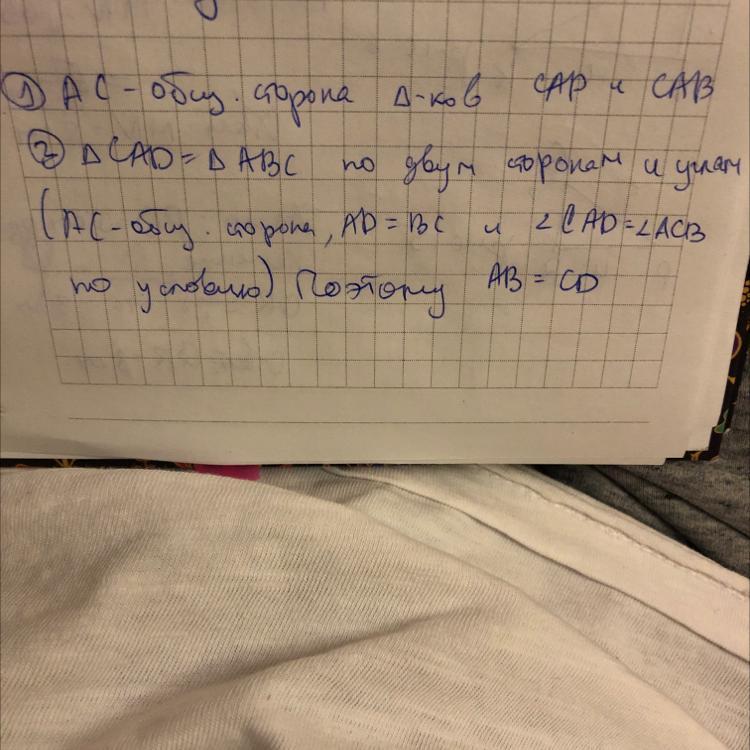 1) AC - общ. сторона Δ-ков CAD и CAB
2) ΔCAD = ΔABC по двум сторонам и углам
(AC - общ. сторона, AD = BC и ∠CAD = ∠ACB
по условию) Поэтому AB = CD